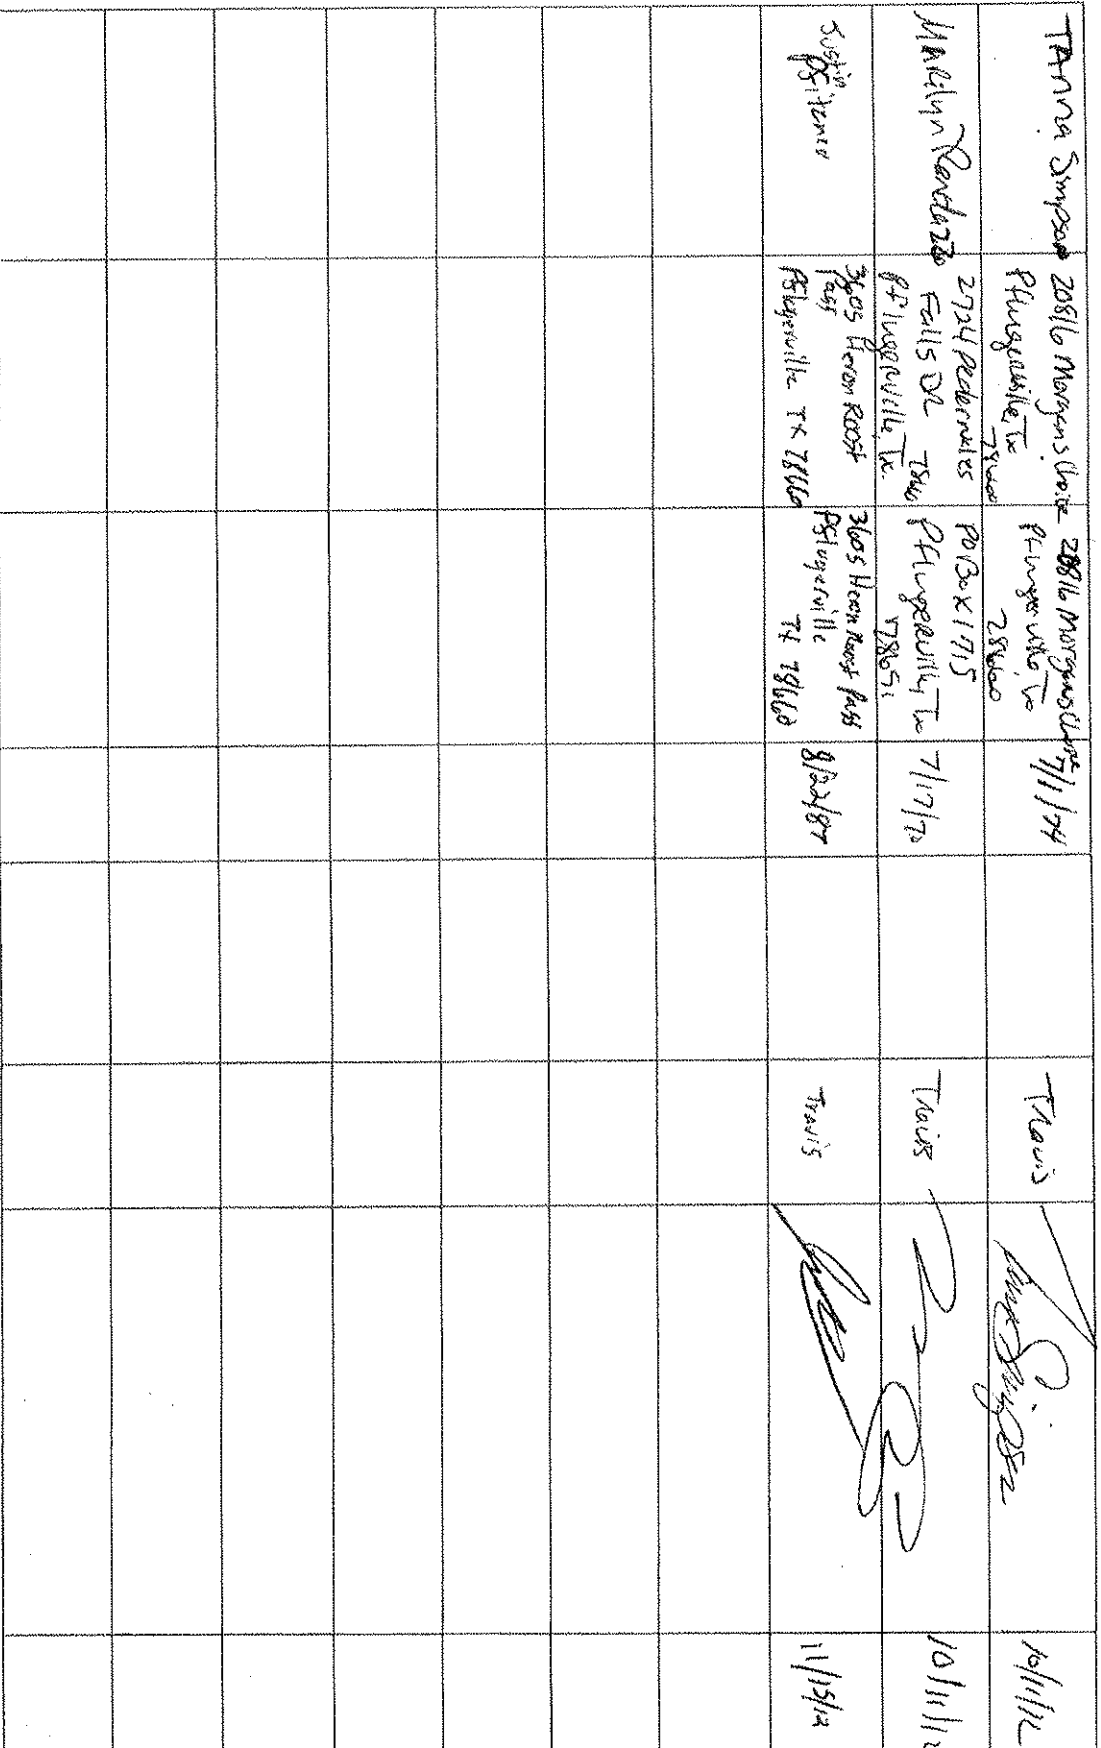 TAnna Simpson
20816 Morgans Choice
Pflugerville, Tx
78660
20816 Morgans Choice
Pflugerville Tx
78660
7/1/74
Travis
10/11/12
MARilyn Randazzo
2724 Pedernales
Falls DR 78660
Pflugerville, Tx.
PO Box 1715
Pflugerville, Tx
78691
7/17/70
Travis
10/11/12
Justin
3605 Heron Roost
Pass
Pflugerville TX 78660
3605 Heron Roost Pass
Pflugerville
TX 78660
8/22/87
Travis
11/15/12